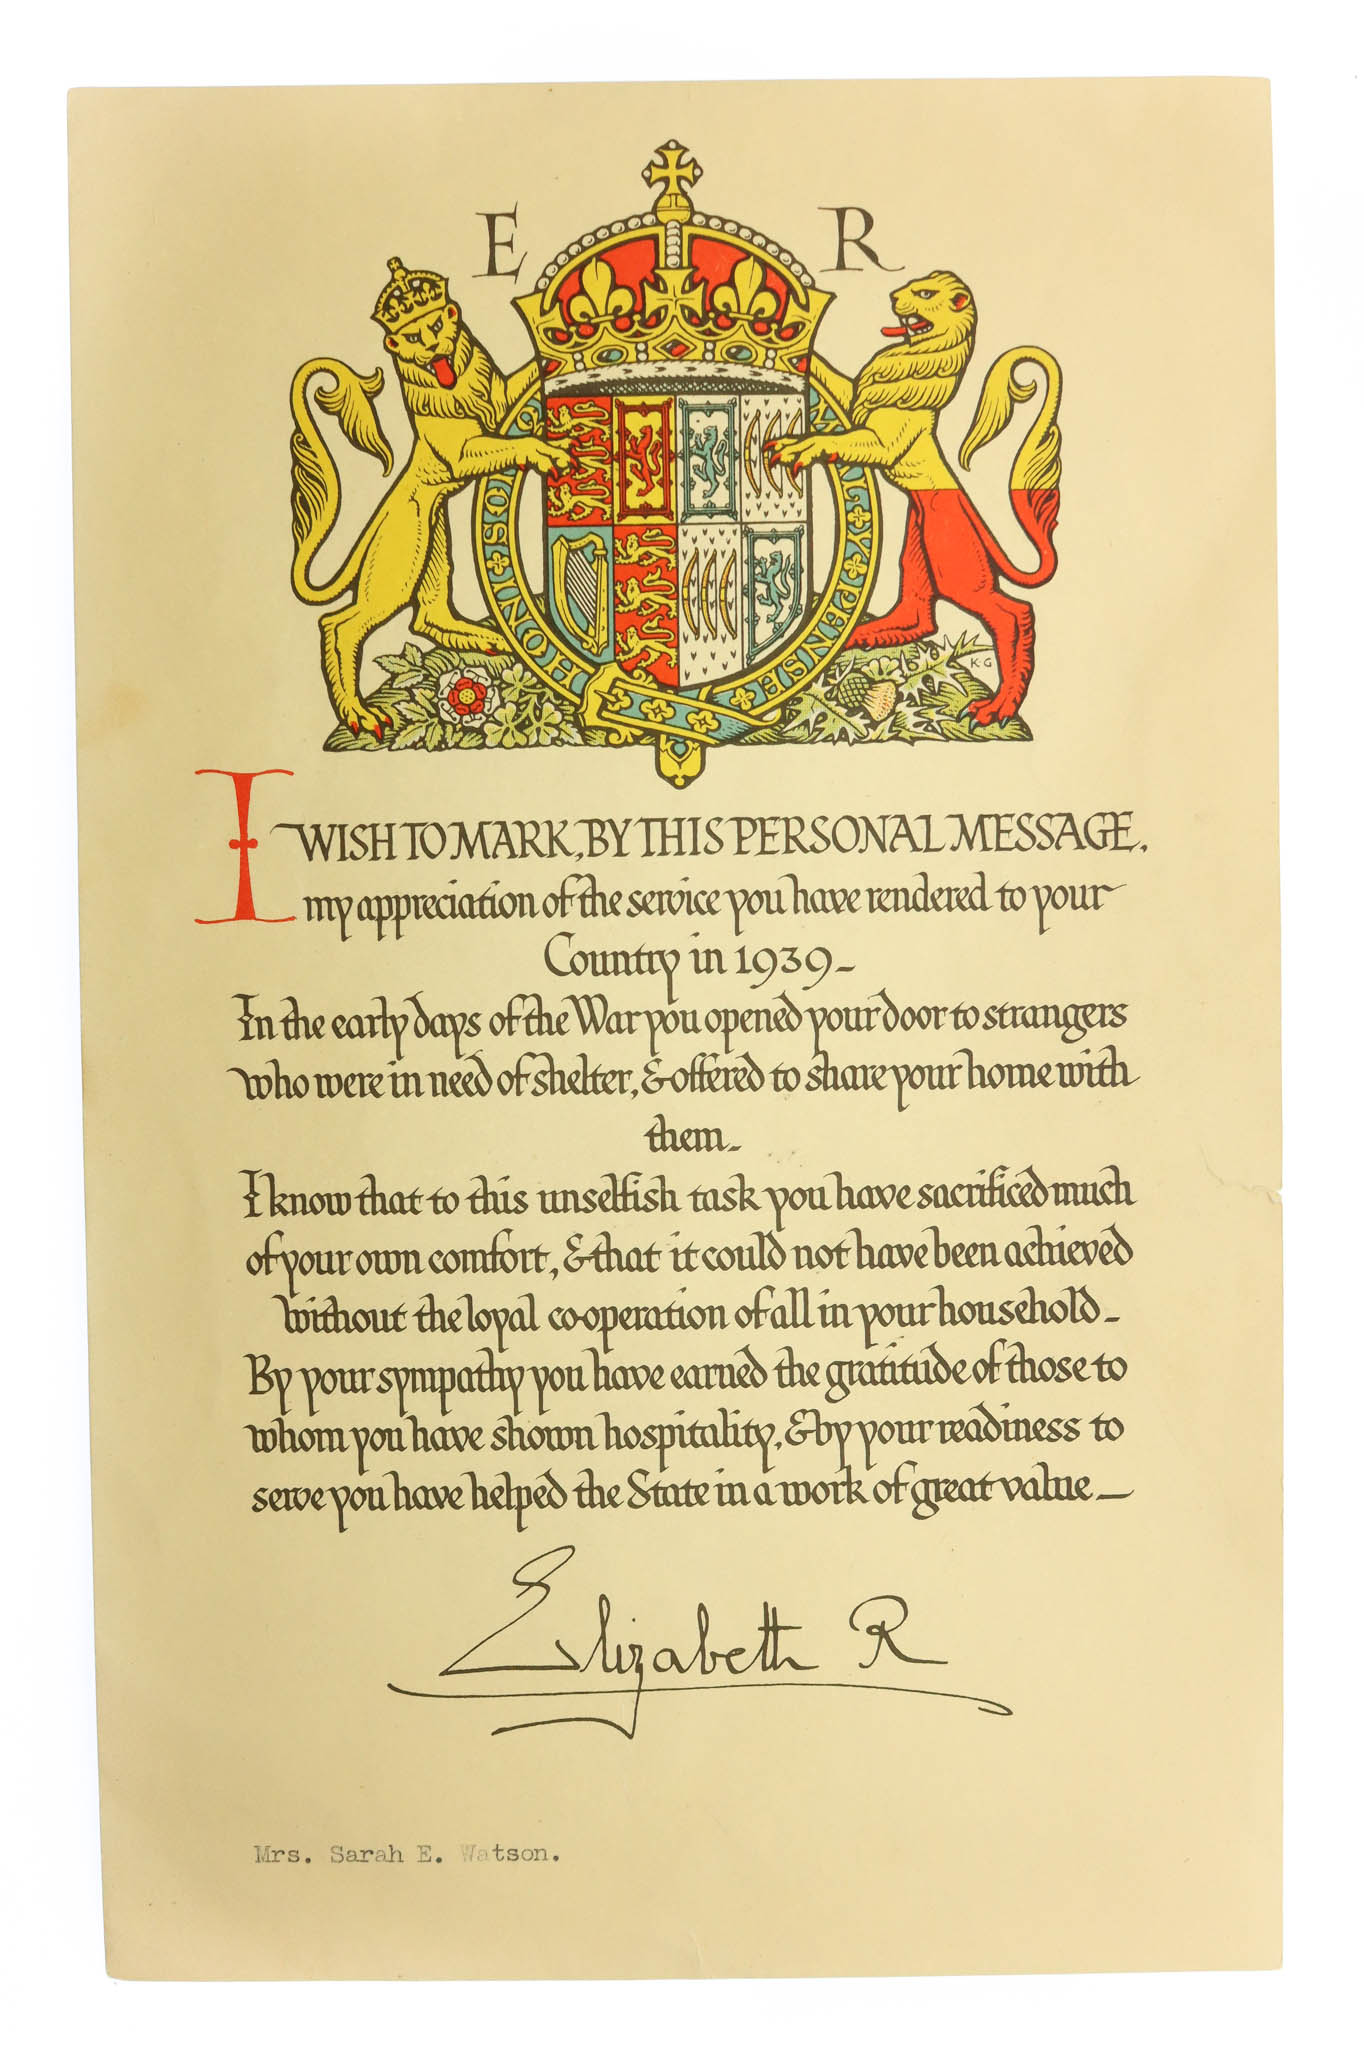 E R
HONI · SO Q
MAL · Y · PENSE
K·G
I WISH TO MARK, BY THIS PERSONAL MESSAGE,
my appreciation of the service you have rendered to your
Country in 1939–
In the early days of the War you opened your door to strangers
who were in need of shelter, & offered to share your home with
them–
I know that to this unselfish task you have sacrificed much
of your own comfort, & that it could not have been achieved
without the loyal co-operation of all in your household–
By your sympathy you have earned the gratitude of those to
whom you have shown hospitality, & by your readiness to
serve you have helped the State in a work of great value–
Elizabeth R
Mrs. Sarah E. Watson.